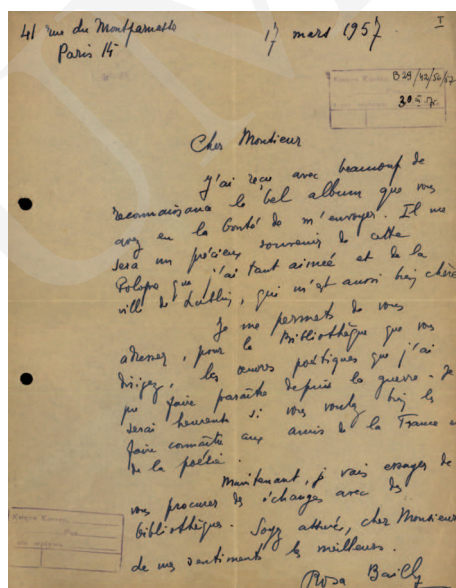 41 rue du Montparnasse
Paris 14
17 mars 1957
I
B 29/42/56/57
30
Cher Monsieur
J'ai reçu avec beaucoup de
reconnaissance le bel album que vous
avez eu la bonté de m'envoyer. Il me
sera un précieux souvenir de cette
Pologne que j'ai tant aimée et de la
ville de Lublin, qui m'est aussi bien chère
Je me permets de vous
adresser, pour la Bibliothèque que vous
dirigez, les œuvres poétiques que j'ai
pu faire paraître depuis la guerre. Je
serai heureuse si vous voulez bien les
faire connaître aux amis de la France et
de la poésie.
Maintenant, je vais essayer de
vous procurer des échanges avec des
bibliothèques. Soyez assuré, cher Monsieur
de mes sentiments les meilleurs.
Rosa Bailly